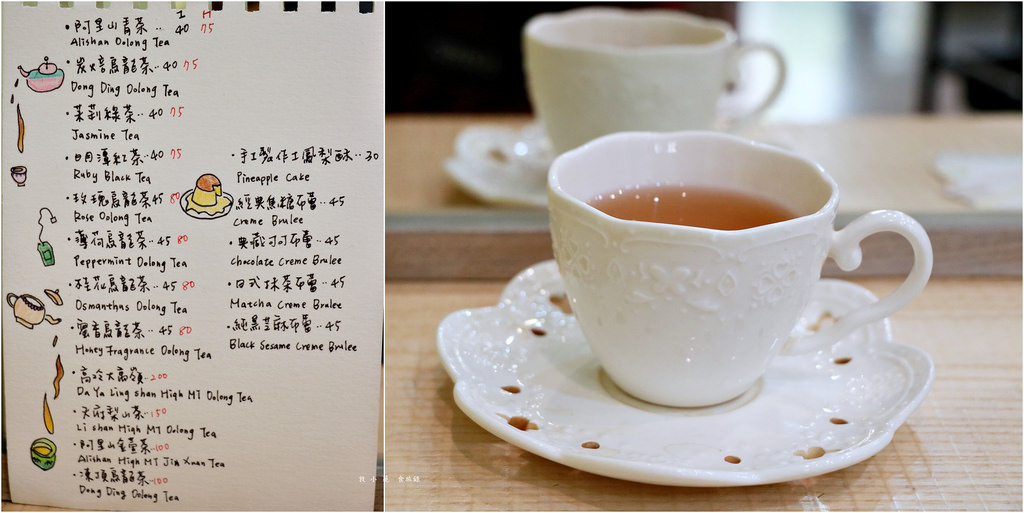 I H
•阿里山青茶‥ 40 75
Alishan Oolong Tea
•炭焙烏龍茶‥40 75
Dong Ding Oolong Tea
•茉莉綠茶‥40 75
Jasmine Tea
•日月潭紅茶‥40 75
Ruby Black Tea
•玫瑰烏龍茶45 80
Rose Oolong Tea
•薄荷烏龍茶‥45 80
Peppermint Oolong Tea
•桂花烏龍茶‥45 80
Osmanthas Oolong Tea
•蜜香烏龍茶‥45 80
Honey Fragrance Oolong Tea
•高冷大禹嶺‥200
Da Ya Ling shan High MT Oolong Tea
•天府梨山茶‥150
Li shan High MT Oolong Tea
•阿里山金萱茶‥100
Alishan High MT Jin Xuan Tea
•凍頂烏龍茶‥100
Dong Ding Oolong Tea
•手工製作土鳳梨酥‥30
Pineapple Cake
•經典焦糖布蕾‥45
Creme Brulee
•典藏可可布蕾‥45
Chocolate Creme Brulee
•日式抹茶布蕾‥45
Matcha Creme Bralee
•純黑芝麻布蕾‥45
Black Sesame Creme Brulee